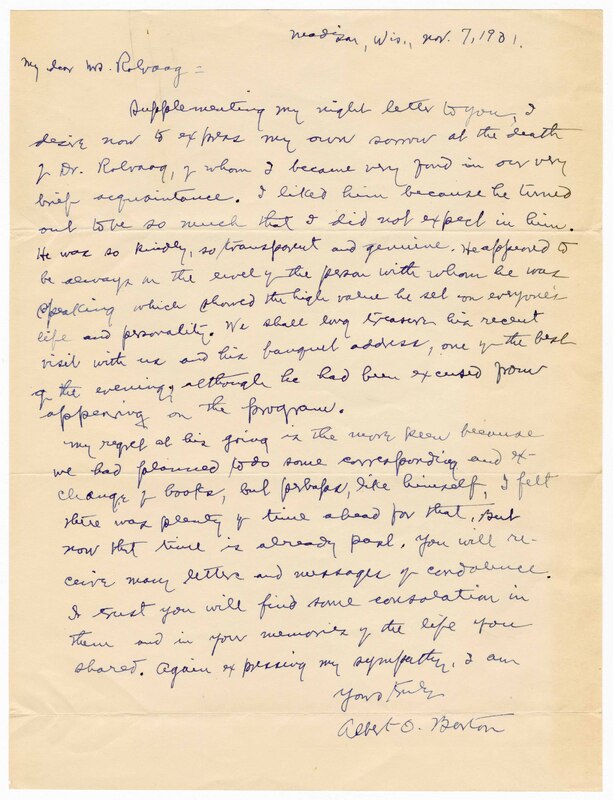 Madison, Wis., Nov. 7, 1931.
My dear Mrs. Rolvaag =
Supplementing my night letter to you, I
desire now to express my own sorrow at the death
of Dr. Rolvaag, of whom I became very fond in our very
brief acquaintance. I liked him because he turned
out to be so much that I did not expect in him.
He was so kindly, so transparent and genuine. He appeared to
be always on the level of the person with whom he was
speaking which showed the high value he set on everyone's
life and personality. We shall long treasure his recent
visit with us and his banquet address, one of the best
of the evening, although he had been excused from
appearing on the program.
My regret at his going is the more keen because
we had planned to do some corresponding and ex-
change of books, but perhaps, like himself, I felt
there was plenty of time ahead for that, but
now that time is already past. You will re-
ceive many letters and messages of condolence.
I trust you will find some consolation in
them and in your memories of the life you
shared. Again expressing my sympathy, I am
Yours truly
Albert O. Barton